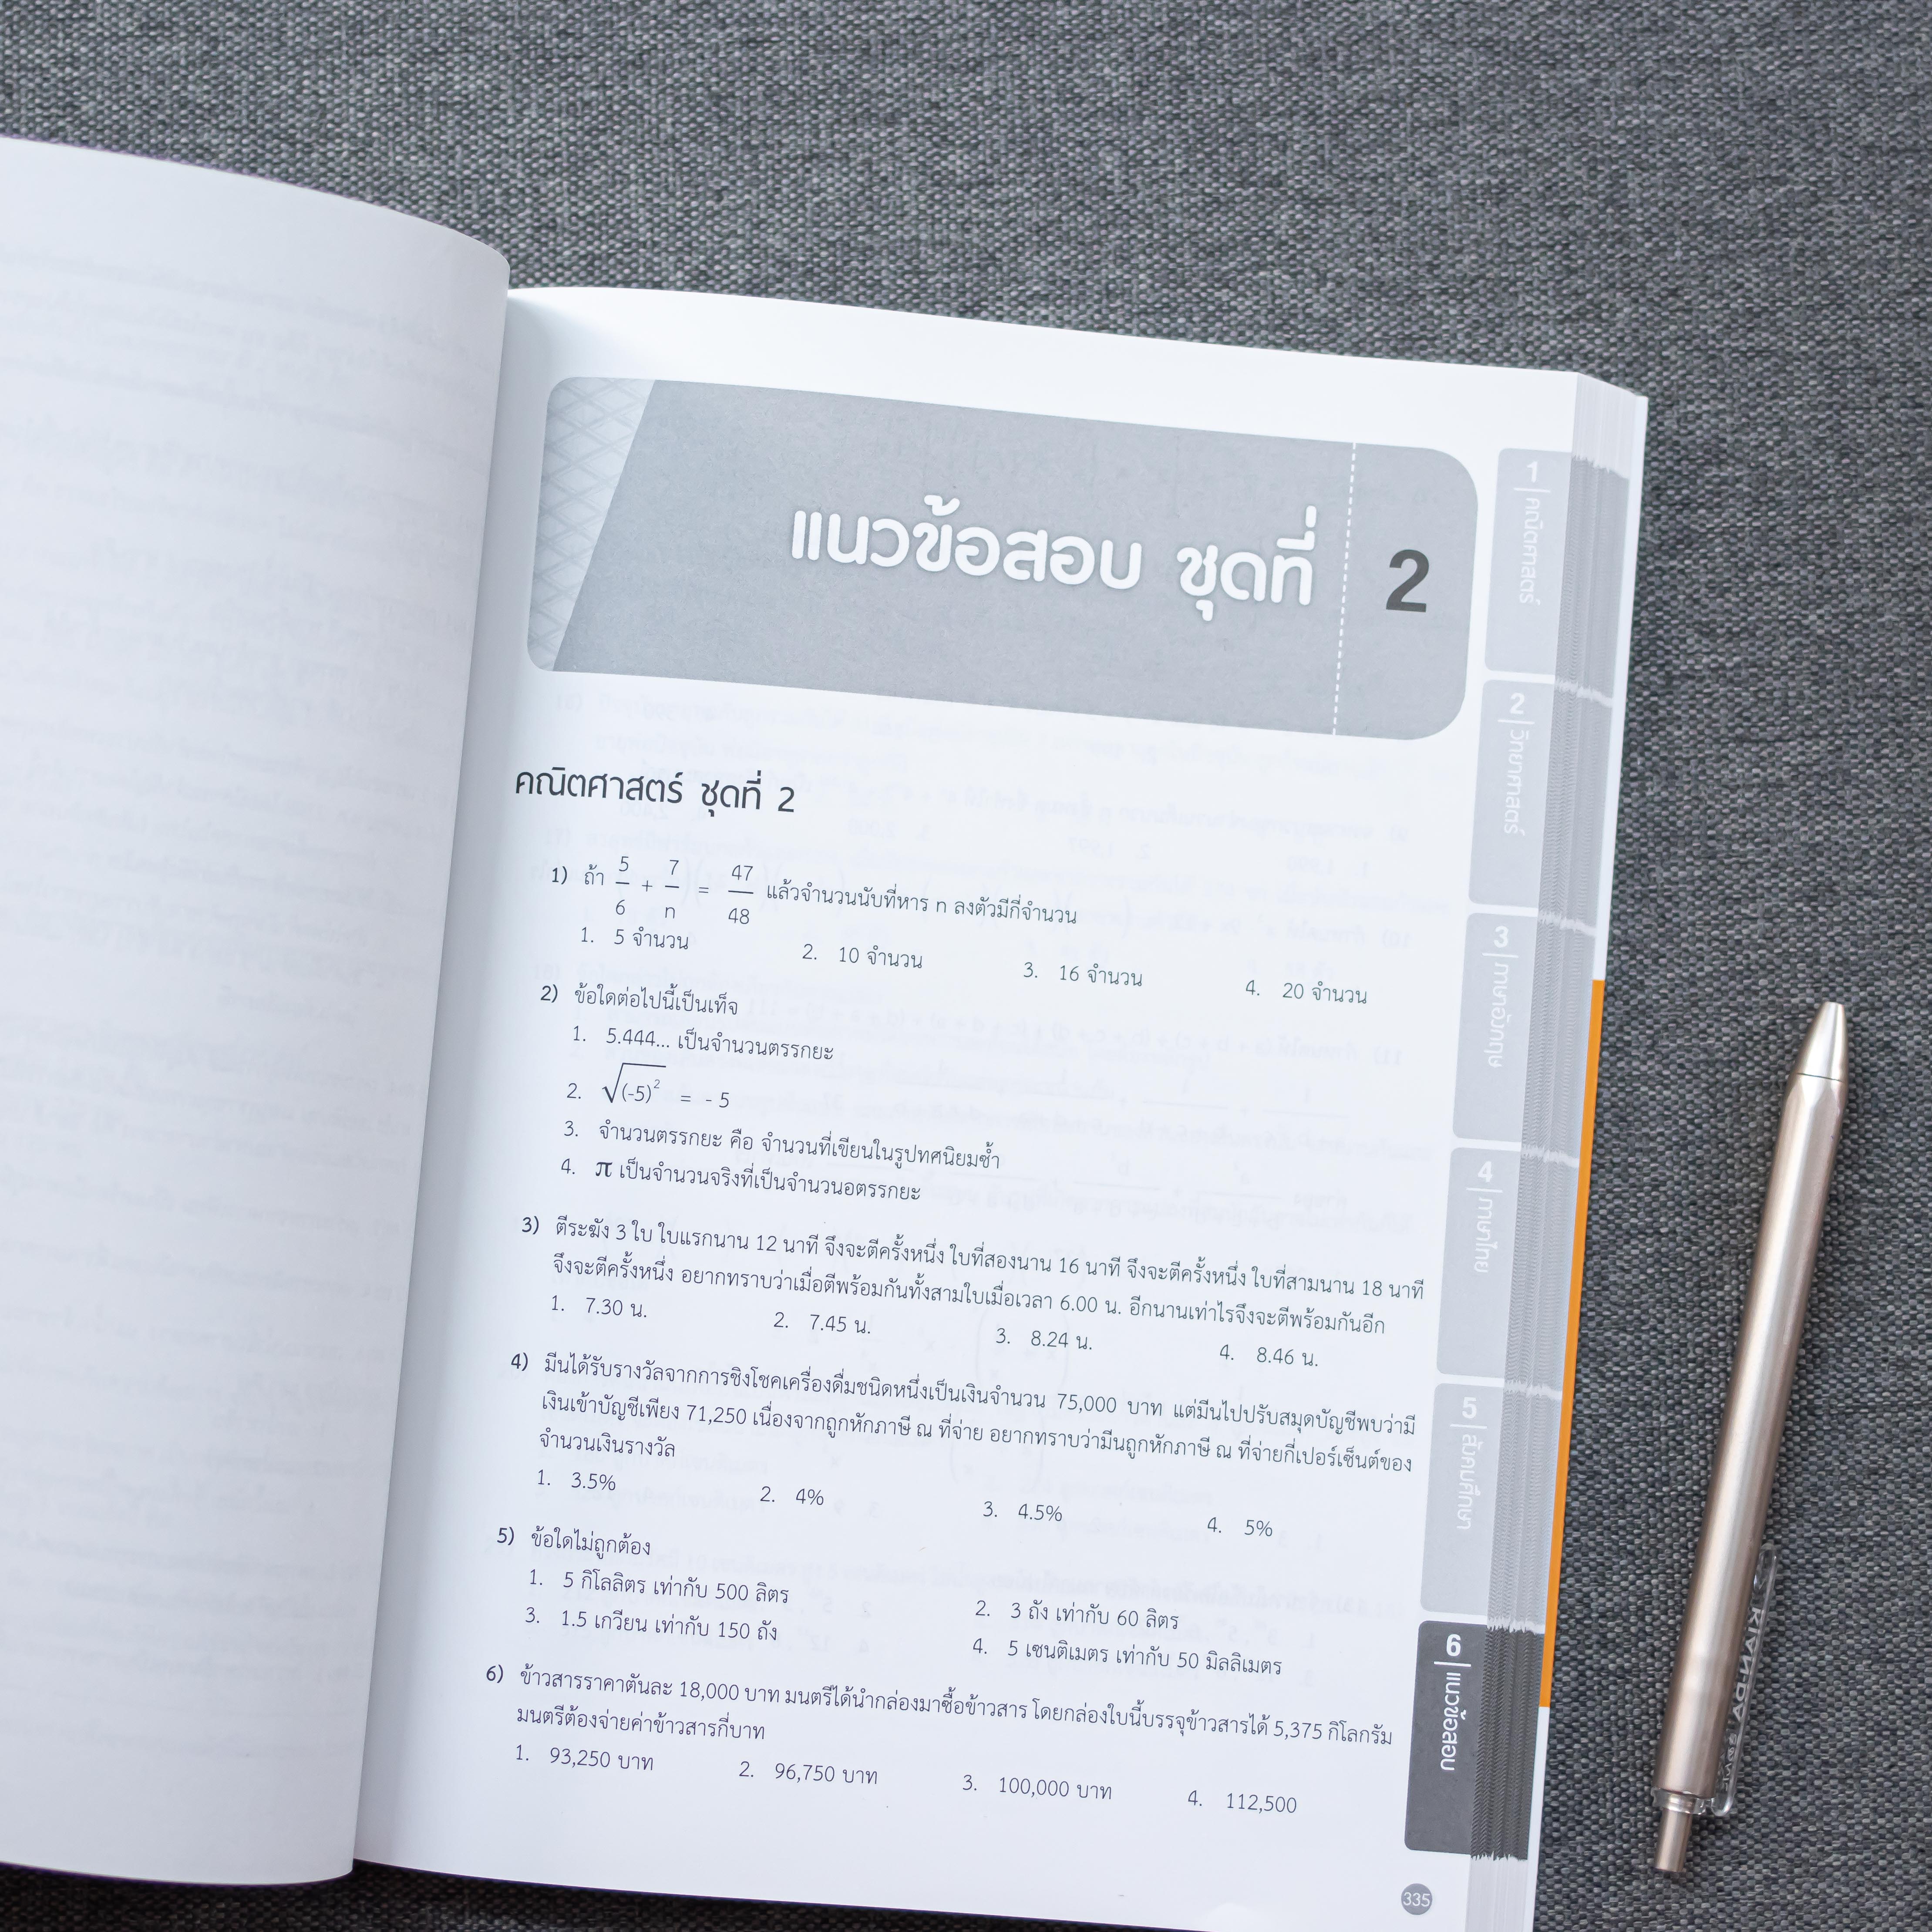 แนวข้อสอบ ชุดที่ 2
คณิตศาสตร์ ชุดที่ 2
1) ถ้า 5/6 + 7/n = 47/48 แล้วจำนวนนับที่หาร n ลงตัวมีกี่จำนวน
1. 5 จำนวน 2. 10 จำนวน 3. 16 จำนวน 4. 20 จำนวน
2) ข้อใดต่อไปนี้เป็นเท็จ
1. 5.444... เป็นจำนวนตรรกยะ
2. √(-5)² = - 5
3. จำนวนตรรกยะ คือ จำนวนที่เขียนในรูปทศนิยมซ้ำ
4. π เป็นจำนวนจริงที่เป็นจำนวนอตรรกยะ
3) ตีระฆัง 3 ใบ ใบแรกนาน 12 นาที จึงจะตีครั้งหนึ่ง ใบที่สองนาน 16 นาที จึงจะตีครั้งหนึ่ง ใบที่สามนาน 18 นาที
จึงจะตีครั้งหนึ่ง อยากทราบว่าเมื่อตีพร้อมกันทั้งสามใบเมื่อเวลา 6.00 น. อีกนานเท่าไรจึงจะตีพร้อมกันอีก
1. 7.30 น. 2. 7.45 น. 3. 8.24 น. 4. 8.46 น.
4) มีนได้รับรางวัลจากการชิงโชคเครื่องดื่มชนิดหนึ่งเป็นเงินจำนวน 75,000 บาท แต่มีนไปปรับสมุดบัญชีพบว่ามี
เงินเข้าบัญชีเพียง 71,250 เนื่องจากถูกหักภาษี ณ ที่จ่าย อยากทราบว่ามีนถูกหักภาษี ณ ที่จ่ายกี่เปอร์เซ็นต์ของ
จำนวนเงินรางวัล
1. 3.5% 2. 4% 3. 4.5% 4. 5%
5) ข้อใดไม่ถูกต้อง
1. 5 กิโลลิตร เท่ากับ 500 ลิตร 2. 3 ถัง เท่ากับ 60 ลิตร
3. 1.5 เกวียน เท่ากับ 150 ถัง 4. 5 เซนติเมตร เท่ากับ 50 มิลลิเมตร
6) ข้าวสารราคาตันละ 18,000 บาท มนตรีได้นำกล่องมาซื้อข้าวสาร โดยกล่องใบนี้บรรจุข้าวสารได้ 5,375 กิโลกรัม
มนตรีต้องจ่ายค่าข้าวสารกี่บาท
1. 93,250 บาท 2. 96,750 บาท 3. 100,000 บาท 4. 112,500
1 คณิตศาสตร์
2 วิทยาศาสตร์
3 ภาษาอังกฤษ
4 ภาษาไทย
5 สังคมศึกษา
6 แนวข้อสอบ
335